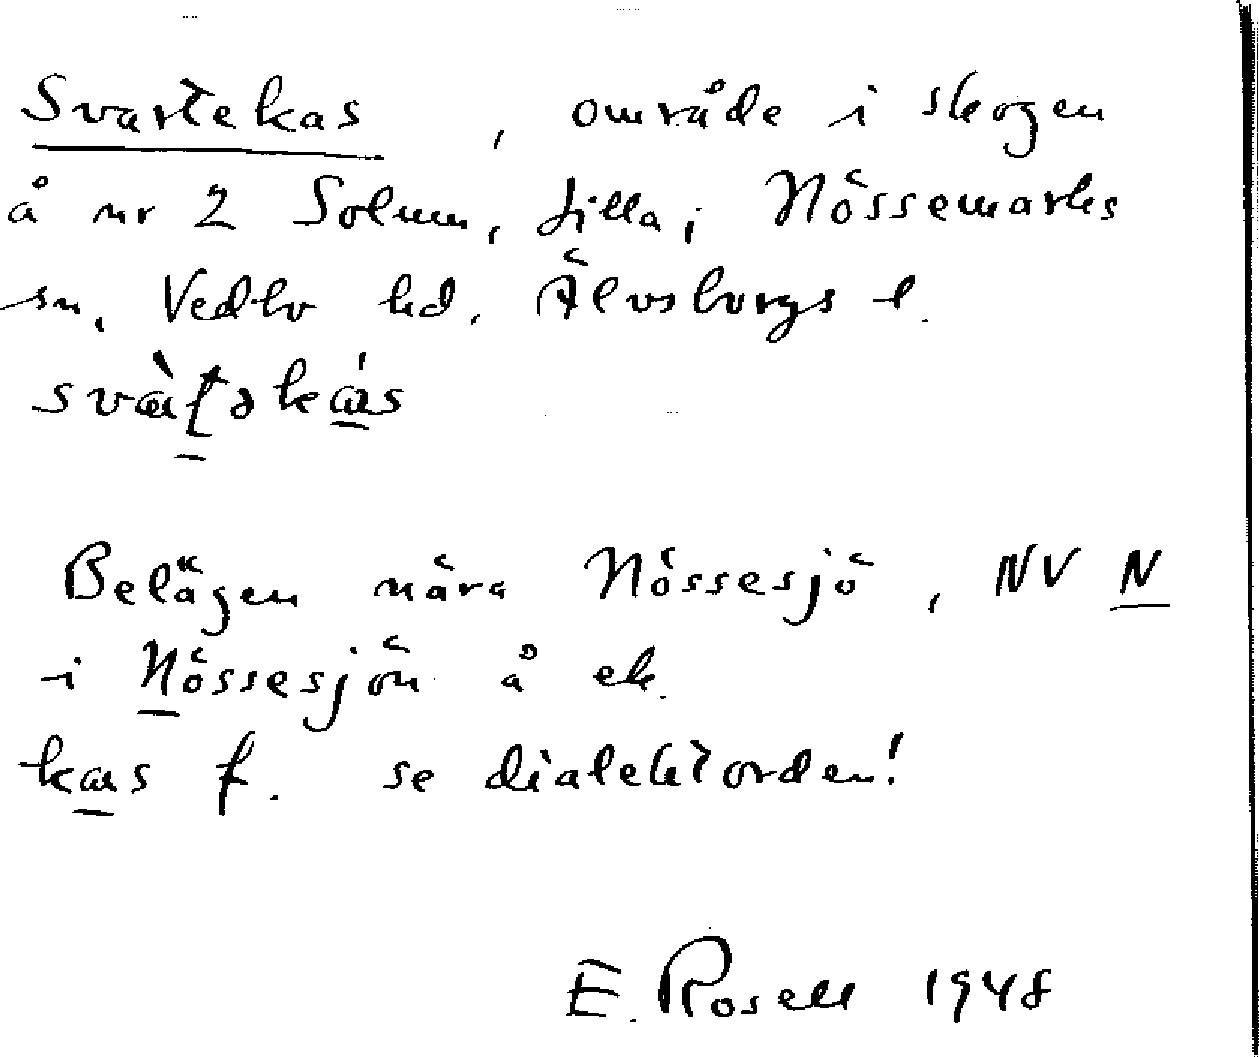 Svartekas, område i skogen
å nr 2 Solum, Lilla, Nössemarks
sn, Vedbo hd, Älvsborgs l.
Belägen nära Nössesjö, NV N
i Nössesjön å ek.
kas f. se dialektorden!
E. Rosell 1948